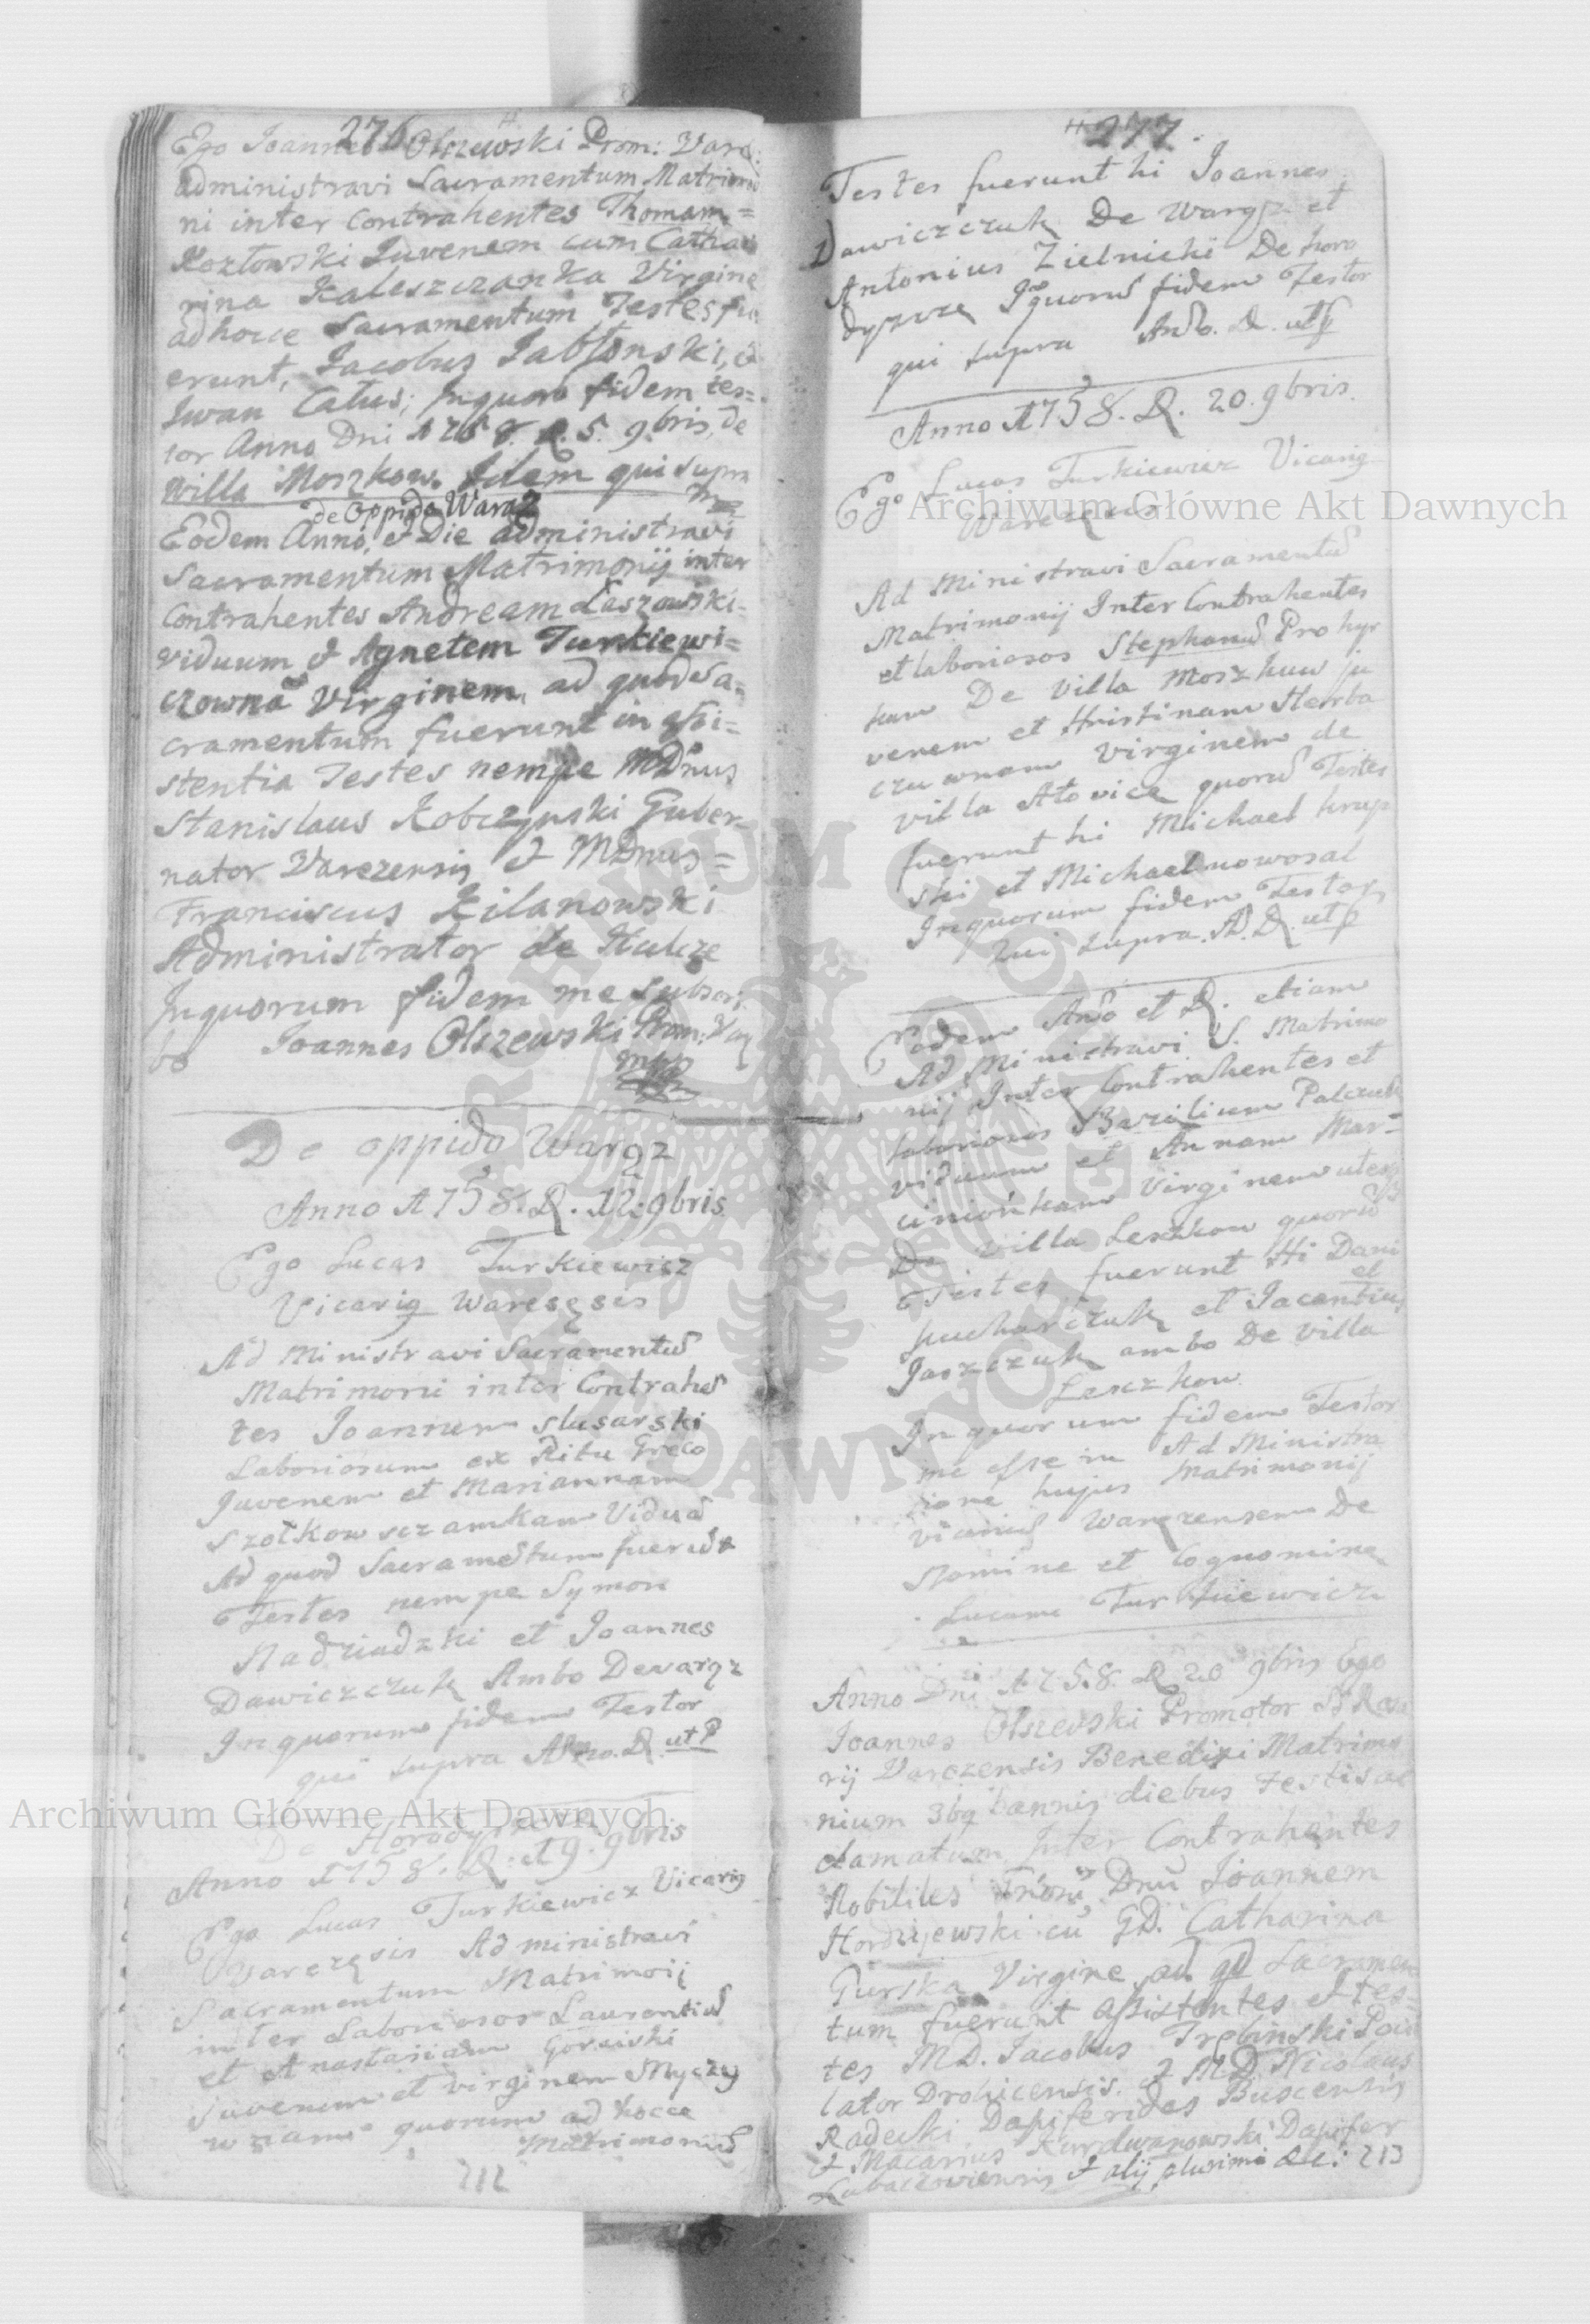 276
Ego Joannes Olszewski Prom: Varę:
administravi Sacramentum Matrimo
ni inter Contrahentes Thomam=
Kozłowski Iuvenem cum Catha
rina Kaleszczanka Virgine
adhocce Sacramentum Testes fu
erunt, Jacobus Jabłonski, &
Iwan Całus; Inquorũ fidem tes=
tor Anno Dni 1758. D. 5. 9bris, de
Willa Moszkow. Idem qui supra
mp
de Oppido Waręz
Eodem Anno, & Die administravi
Sacramentum Matrimonij inter
Contrahentes Andream Łaszowski
Viduum & Agnetem Turkiewi=
czowna Virginem, ad quod Sa=
cramentum fuerunt in assi=
stentia Testes nempe MDnus
Stanislaus Kobczynski Guber
nator Varezensis & MDnus=
Franciscus Kilanowski
Administrator de Hulcze
Inquorum fidem me subscri
bo Joannes Olszewski Prom: Var
mp
De oppido Waręz
Anno 1758. D. 12. 9bris
Ego Lucas Turkiewicz
Vicarig Waresęsis
Ad Ministravi Sacramentũ
Matrimonii inter Contrahẽ
tes Joannem Slusarski
Laboriosum ex Ritu Greco
Juvenem et Mariannam
Szołkowsczamkam Viduã
Ad quod Sacramẽtum fuerũt
Testes nempe Symon
Nadziadzki et Joannes
Dawiczczuk Ambo De Waręz
Inquorum fidem Testor
qui supra Anno. D. ut P
De Horodyszcze
Anno 1758. D. 19. 9bris
Ego Lucas Turkiewicz Vicarig
Varezęsis Ad ministravi
Sacramentum Matrimoij
inter Laboriosos Laurentiũ
et Anastasiam Goraiski
Juvenem et virginem Myczy
wnam quorum ad hocce
Matrimoniũ
212
277
Testes fuerunt hi Joannes
Dawiczczuk De Waręz et
Antonius Zielnicki De horo
dyszcze Iquorũ fidem Testor
qui supra Anõ. D. ut P
Anno 1758. D. 20. 9bris.
Ego Lucas Turkiewicz Vicarig
Ad Ministravi Sacramentũ
Matrimonij Inter Contrahentes
et laboriosos Stephanũ Prohyr
kam De Villa Moszkuw ju
venem et Hristinam Herba
czuwnam virginem de
villa Ałovice quorũ Testes
fuerunt hi Michael krup
ski et Michael nowosal
Inquorum fidem Testor
Qui supra. A. D. ut P
Eodem Anõ et D. etiam
Ad Ministravi S. Matrimo
nij Inter Contrahentes et
laboriosos Bazilium Palczuk
viduum et Annam Mar=
cinionkam Virginem
De villa Leszkow quorũ
Testes fuerunt Hi Dani
el
kucharczuk et Jacentius
Jaszczuk ambo De villa
Leszkow
Inquorum fidem Testor
me esse in Ad Ministra
cione hujus Matrimonij
vicariũ Waręzensem De
Nomine et Cognomine
Lucam Turkiewicz
Anno Dni 1758. D 20 9bris Ego
Joannes Olszevski Promotor SS Rosa
rij Varezensis Benedixi Matrimo
nium 3bg bannis diebus Festis ac
clamatum Inter Contrahentes
Nobililes Dnũ Joannem
Hordyjewski cũ GD. Catharina
Gurska Virgine, ad qd Sacramen
tum fuerunt assistentes & tes=
tes MD. Jacobus Trębinski Pocil
lator Drohicensis. & MD Nicolaus
Radecki Dapiferides Buscensis
& Macarius Kurdwanowski Dapifer
Lubaczoviensis & alij plurimi &c: 213
Archiwum Główne Akt Dawnych
Archiwum Główne Akt Dawnych
ARCHIWUM GŁÓWNE AKT DAWNYCH